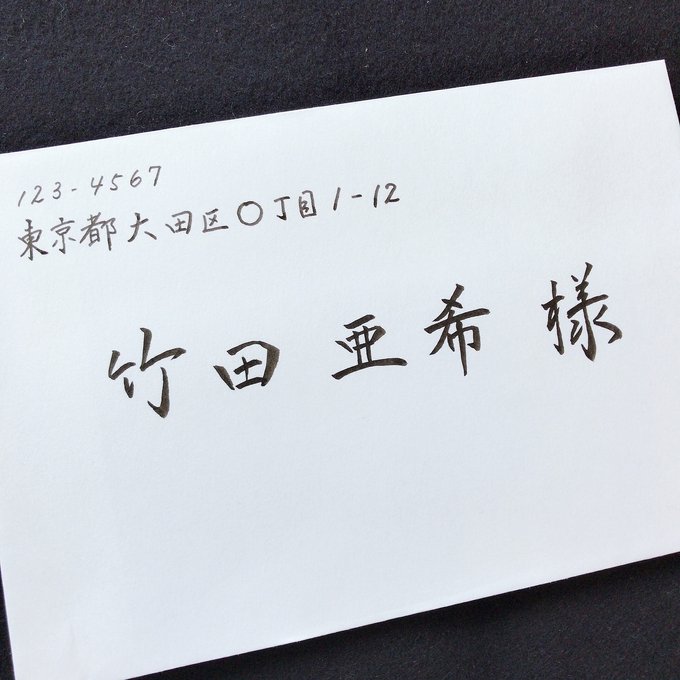 123-4567
東京都大田区〇丁目1-12
竹田 亜希 様